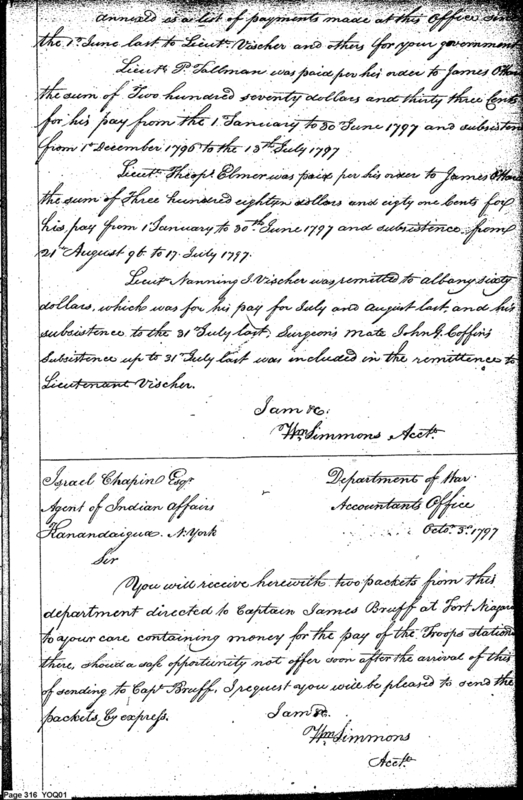 annexed is a list of payments made at this Office since
the 1st June last to Lieut. Vischer and others for your government
Lieut. P. Tallman was paid per his order to James OHara
the sum of Two hundred seventy dollars and thirty three Cents
for his pay from the 1 January to 30 June 1797 and subsistence
from 1st December 1796 to the 13th July 1797
Lieut. Theops. Elmer was paid per his order to James OHara
the sum of Three hundred eighty dollars and eighty one Cents for
his pay from 1 January to 30th June 1797 and subsistence from
21st August 96 to 17 July 1797.
Lieut Nanning J. Vischer was remitted to albany sixty
dollars, which was for his pay for July and August last, and his
subsistence to the 31st July last, Surgeon's mate John G. Coffin's
Subsistence up to 31st July last was included in the remittence to
Lieutenant Vischer.
I am &c.
Wm Simmons Acct.
Israel Chapin Esqr
Agent of Indian Affairs
Kanandaigua. N. York
Department of War
Accountants Office
Octo. 3d. 1797
Sir
You will receive herewith two packets from this
department directed to Captain James Bruff at Fort Niagara
to your care containing money for the pay of the Troops station
there, shoud a safe opportunity not offer soon after the arrival of this
of sending to Capt. Bruff, I request you will be pleased to send the
packets by express.
I am &c.
Wm Simmons
Acct.
Page 316 YOQ01